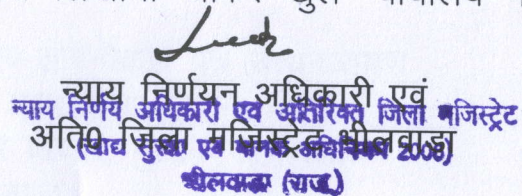 न्याय निर्णयन अधिकारी एवं
न्याय निर्णय अधिकारी एवं अतिरिक्त जिला मजिस्ट्रेट
अति0 जिला मजिस्ट्रेट भीलवाड़ा
(खाद्य सुरक्षा एवं मानक अधिनियम 2006)
भीलवाड़ा (राज.)